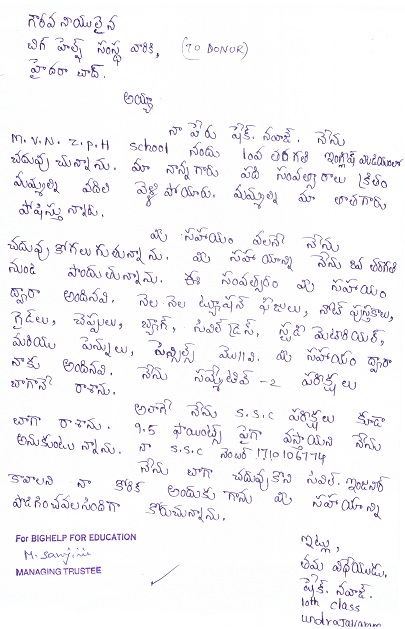 గౌరవనీయులైన
బిగ్ హెల్ప్ సంస్థ వారికి, (TO DONOR)
హైదరాబాద్.
అయ్యా
నా పేరు షేక్. నవాజ్. నేను
M.V.N. Z.P.H school నందు 10వ తరగతి ఇంగ్లీష్ మీడియంలో
చదువుచున్నాను. మా నాన్నగారు పది సంవత్సరాలు క్రితం
మమ్మల్ని వదిలి వెళ్ళిపోయారు. మమ్మల్ని మా తాతగారు
పోషిస్తున్నారు.
మీ సహాయం వలనే నేను
చదువుకోగలుగుతున్నాను. మీ సహాయాన్ని నేను 8వ తరగతి
నుండి పొందుతున్నాను. ఈ సంవత్సరం మీ సహాయం
ద్వారా అందినవి. నెల నెల ట్యూషన్ ఫీజులు, నోట్ పుస్తకాలు,
గైడ్‌లు, చెప్పులు, బ్యాగ్, సివిల్ డ్రెస్, స్టడీ మెటీరియల్,
మరియు పెన్నులు, పెన్సిల్స్ మొ||వి. మీ సహాయం ద్వారా
నాకు అందినవి. నేను సమ్మేటివ్ -2 పరీక్షలు
బాగానే రాశాను.
అలాగే నేను S.S.C పరీక్షలు కూడా
బాగా రాశాను. 9.5 పాయింట్స్ పైగా వస్తాయని నేను
అనుకుంటున్నాను. నా S.S.C నెంబర్ 1710106774
నేను బాగా చదువుకొని సివిల్ ఇంజనీర్
కావాలని నా కోరిక అందుకు గాను మీ సహాయాన్ని
పొడిగించవలసిందిగా కోరుచున్నాను.
ఇట్లు,
తమ విధేయుడు.
షేక్. నవాజ్.
10th class
undrajavaram
For BIGHELP FOR EDUCATION
MANAGING TRUSTEE